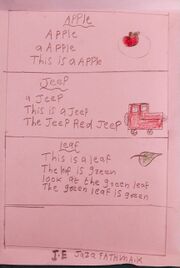 Apple
Apple
a Apple
This is a Apple
Jeep
a Jeep
This is a Jeep
The Jeep Red Jeep
leaf
This is a leaf
The leaf is green
look at the green leaf
The green leaf is green
J.E Jaza FATHMA.K